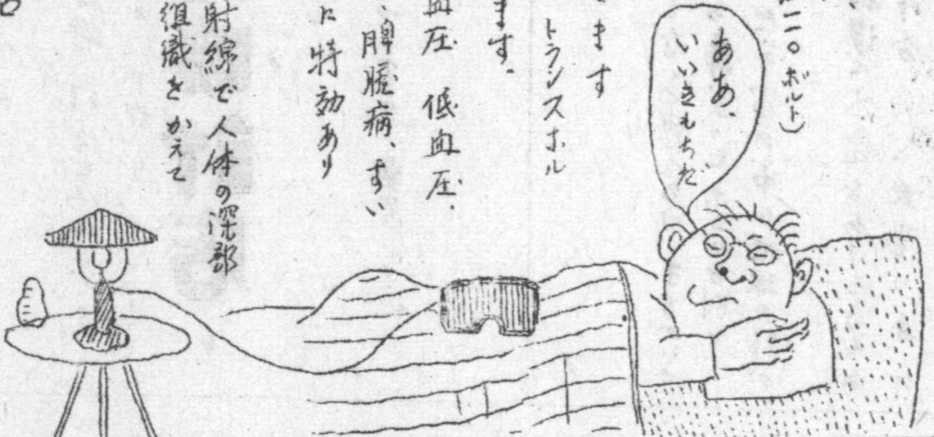 二〇ボルト)
ああ、
いいきもちだ
ます
トランスホル
ます。
血圧 低血圧、
、脾臓病、すい
に特効あり
射線で人体の深部
組織をかえて